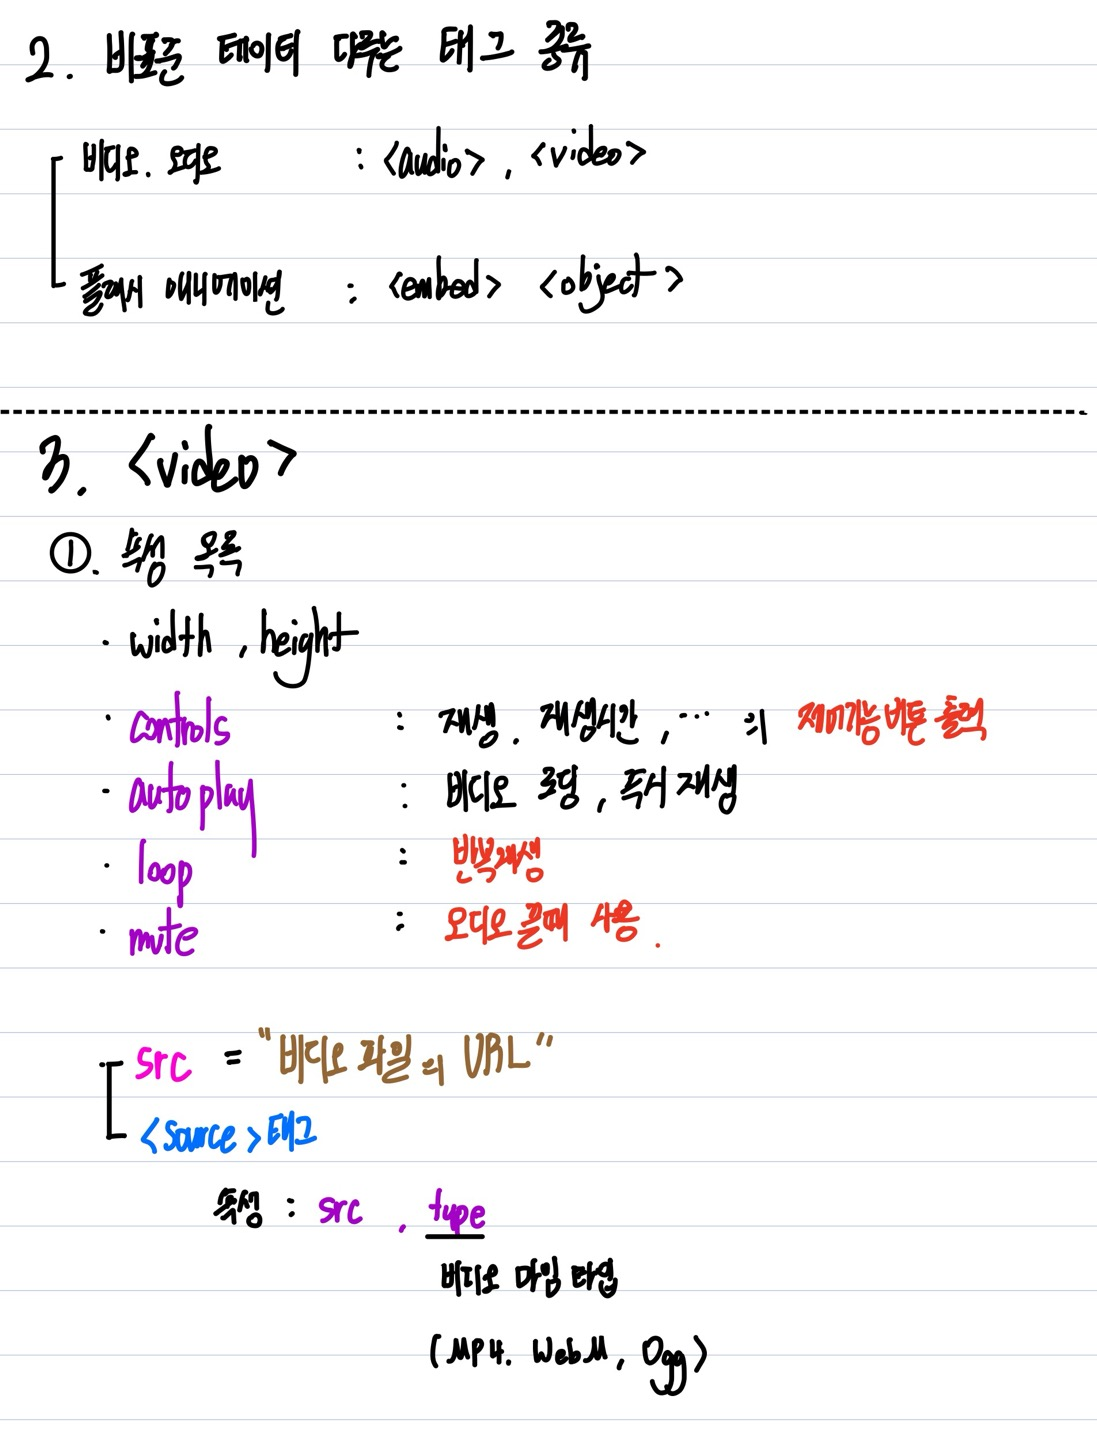 2. 비표준 데이터 다루는 태그 종류
비디오. 오디오 : <audio>, <video>
플래시 애니메이션 : <embed> <object>
3. <video>
①. 속성 목록
· width , height
· controls : 재생. 재생시간, ... 의 제어기능 버튼 출력
· autoplay : 비디오 로딩, 즉시 재생
· loop : 반복재생
· mute : 오디오 끌때 사용.
· src = "비디오 파일의 URL"
<source> 태그
속성 : src , type
비디오 마임 타입
(MP4. WebM, Ogg)